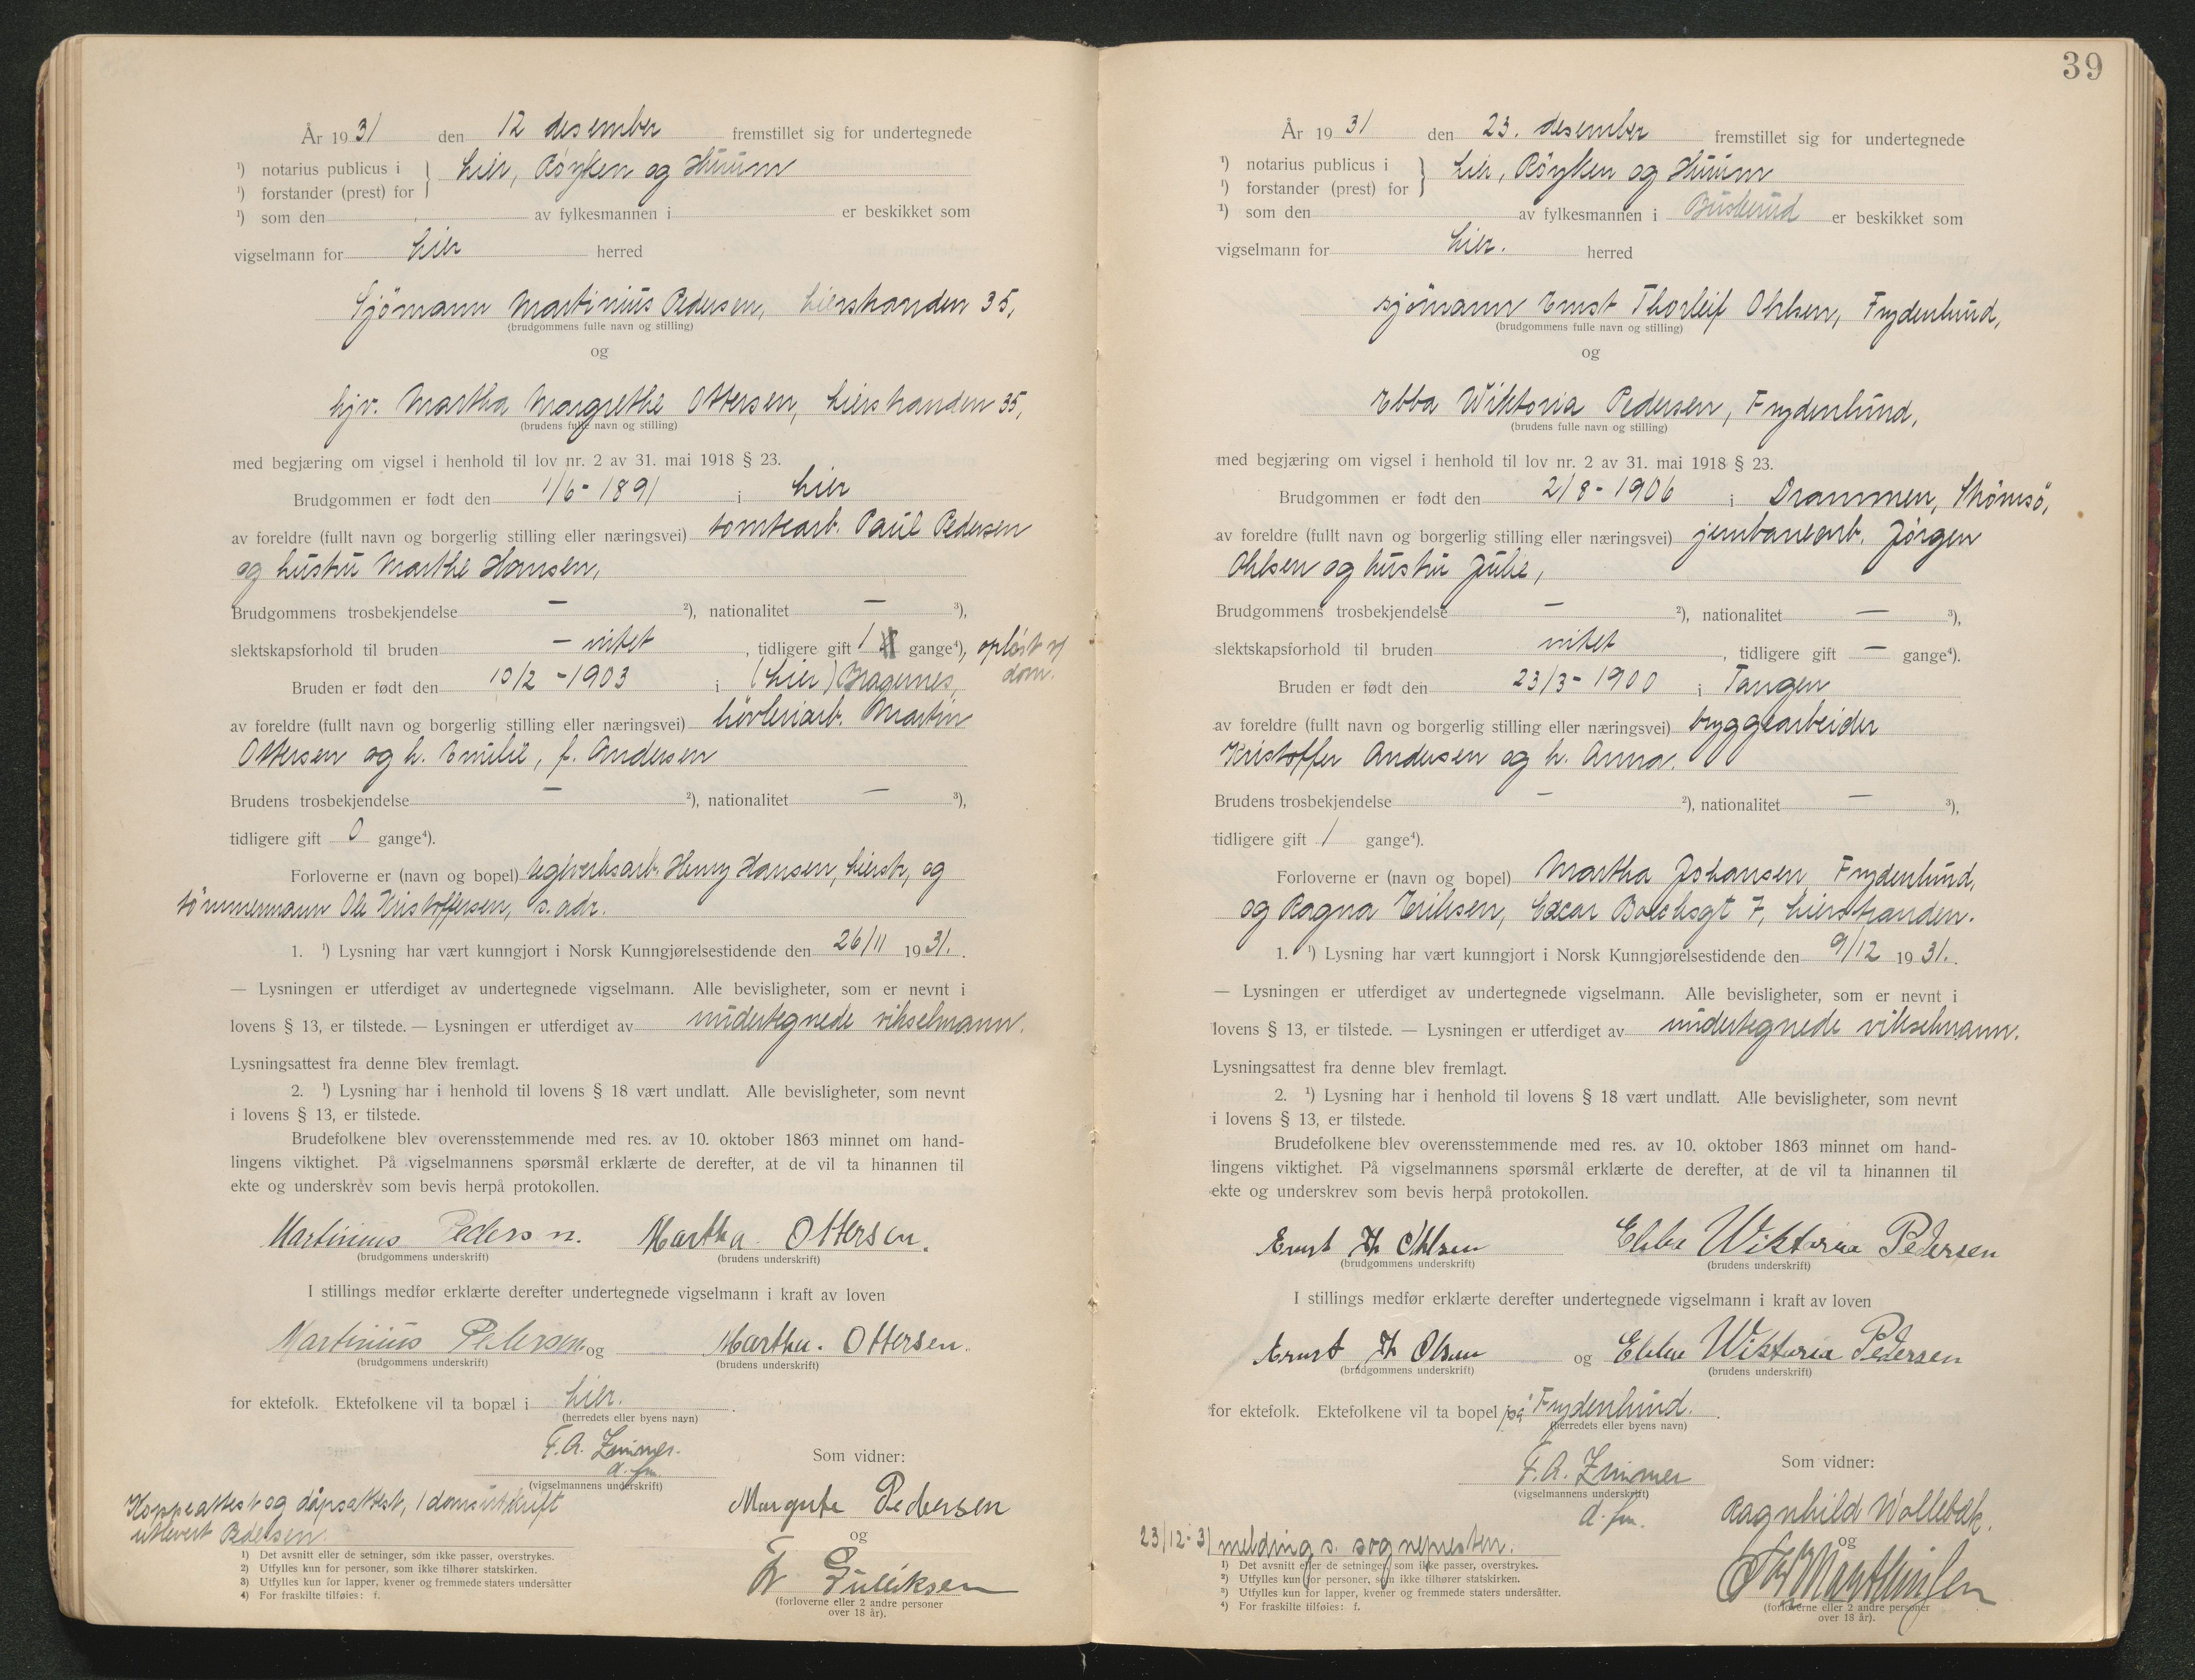 År 1931 den 12 desember fremstillet sig for undertegnede
¹) notarius publicus i } Lier, Röyken og Hurum
¹) forstander (prest) for
¹) som den av fylkesmannen i er beskikket som
vigselmann for Lier herred
Sjömann Martinius Pedersen, Lierstranden 35,
(brudgommens fulle navn og stilling)
og
hjv. Martha Margrethe Ottersen, Lierstranden 35,
(brudens fulle navn og stilling)
med begjæring om vigsel i henhold til lov nr. 2 av 31. mai 1918 § 23.
Brudgommen er født den 1/6-1891 i Lier
av foreldre (fullt navn og borgerlig stilling eller næringsvei) tomtearb. Paul Pedersen
og hustru Marthe Hansen,
Brudgommens trosbekjendelse — ²), nationalitet — ³),
slektskapsforhold til bruden — intet, tidligere gift 1 gange⁴), opløst v/ dom.
Bruden er født den 10/2-1903 i (Lier) Bragernes,
av foreldre (fullt navn og borgerlig stilling eller næringsvei) høvleriarb. Martin
Ottersen og h. Emilie, f. Andersen
Brudens trosbekjendelse — ²), nationalitet — ³),
tidligere gift 0 gange⁴).
Forloverne er (navn og bopel) teglverksarb. Henry Hansen, Lierstr, og
tömmermann Ole Kristoffersen, s. adr.
1. ¹) Lysning har vært kunngjort i Norsk Kunngjørelsestidende den 26/11 1931.
— Lysningen er utferdiget av undertegnede vigselmann. Alle bevisligheter, som er nevnt i
lovens § 13, er tilstede. — Lysningen er utferdiget av undertegnede vikselmann.
Lysningsattest fra denne blev fremlagt.
2. ¹) Lysning har i henhold til lovens § 18 vært undlatt. Alle bevisligheter, som nevnt
i lovens § 13, er tilstede.
Brudefolkene blev overensstemmende med res. av 10. oktober 1863 minnet om hand-
lingens viktighet. På vigselmannens spørsmål erklærte de derefter, at de vil ta hinannen til
ekte og underskrev som bevis herpå protokollen.
Martinius Pedersn. Martha Ottersen.
(brudgommens underskrift) (brudens underskrift)
I stillings medfør erklærte derefter undertegnede vigselmann i kraft av loven
Martinius Pedersen og Martha. Ottersen.
(brudgommens underskrift) (brudens underskrift)
for ektefolk. Ektefolkene vil ta bopæl i Lier.
(herredets eller byens navn)
F.A. Zimmer.
d. fm.
(vigselmannens underskrift)
Som vidner:
Koppeattest og dåpsattest, 1 domsutskrift
utlevert Pedersen.
Margrete Pedersen
og
Fr Guliksen
(forloverne eller 2 andre personer
over 18 år).
1) Det avsnitt eller de setninger, som ikke passer, overstrykes.
2) Utfylles kun for personer, som ikke tilhører statskirken.
3) Utfylles kun for lapper, kvener og fremmede staters undersåtter
4) For fraskilte tilføies: f.
39
År 1931 den 23. desember fremstillet sig for undertegnede
¹) notarius publicus i } Lier, Röyken og Hurum
¹) forstander (prest) for
¹) som den av fylkesmannen i Buskerud er beskikket som
vigselmann for Lier. herred
sjömann Ernst Thorleif Ohlsen, Frydenlund,
(brudgommens fulle navn og stilling)
og
Ebba Wiktoria Pedersen, Frydenlund,
(brudens fulle navn og stilling)
med begjæring om vigsel i henhold til lov nr. 2 av 31. mai 1918 § 23.
Brudgommen er født den 2/8-1906 i Drammen, Strömsö,
av foreldre (fullt navn og borgerlig stilling eller næringsvei) jernbanearb. Jörgen
Ohlsen og hustru Julie,
Brudgommens trosbekjendelse — ²), nationalitet — ³),
slektskapsforhold til bruden intet, tidligere gift — gange⁴).
Bruden er født den 23/3-1900 i Tangen
av foreldre (fullt navn og borgerlig stilling eller næringsvei) bryggearbeider
Kristoffer Andersen og h. Anna.
Brudens trosbekjendelse — ²), nationalitet — ³),
tidligere gift 1 gange⁴).
Forloverne er (navn og bopel) Martha Johansen, Frydenlund,
og Ragna Eriksen, Oscar Borchsgt 7, Lierstranden.
1. ¹) Lysning har vært kunngjort i Norsk Kunngjørelsestidende den 9/12 1931.
— Lysningen er utferdiget av undertegnede vigselmann. Alle bevisligheter, som er nevnt i
lovens § 13, er tilstede. — Lysningen er utferdiget av undertegnede vikselmann.
Lysningsattest fra denne blev fremlagt.
2. ¹) Lysning har i henhold til lovens § 18 vært undlatt. Alle bevisligheter, som nevnt
i lovens § 13, er tilstede.
Brudefolkene blev overensstemmende med res. av 10. oktober 1863 minnet om hand-
lingens viktighet. På vigselmannens spørsmål erklærte de derefter, at de vil ta hinannen til
ekte og underskrev som bevis herpå protokollen.
Ernst Th Ohlsen Ebba Wiktoria Pedersen
(brudgommens underskrift) (brudens underskrift)
I stillings medfør erklærte derefter undertegnede vigselmann i kraft av loven
Ernst Th Olsen og Ebba Wiktoria Pedersen
(brudgommens underskrift) (brudens underskrift)
for ektefolk. Ektefolkene vil ta bopel på Frydenlund.
(herredets eller byens navn)
F.A. Zimmer
(vigselmannens underskrift)
d. fm.
Som vidner:
Ragnhild Wollebæk.
23/12-31 melding s. sognepresten.
og
Marthinsen
(forloverne eller 2 andre personer
over 18 år).
1) Det avsnitt eller de setninger, som ikke passer, overstrykes.
2) Utfylles kun for personer, som ikke tilhører statskirken.
3) Utfylles kun for lapper, kvener og fremmede staters undersåtter.
4) For fraskilte tilføies: f.